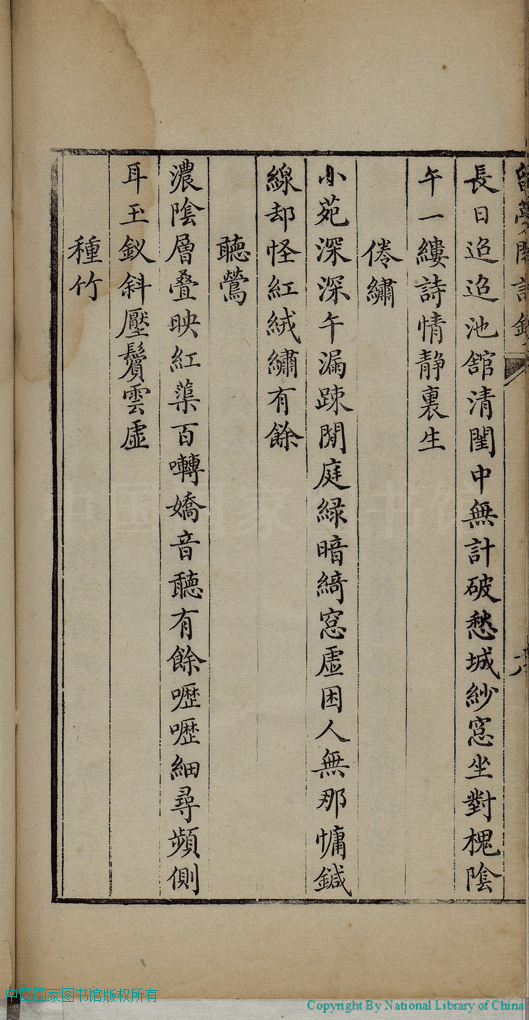 長日迢迢池舘清閨中無計破愁城紗窓坐對槐陰
午一縷詩情静裏生
倦繡
小苑深深午漏踈閒庭緑暗綺窓虛困人無那慵鍼
線却怪紅絨繡有餘
聽鶯
濃陰層叠映紅蕖百囀嬌音聽有餘嚦嚦細尋頻側
耳玉釵斜壓鬢雲虛
種竹
中国国家图书馆版权所有
Copyright By National Library of China